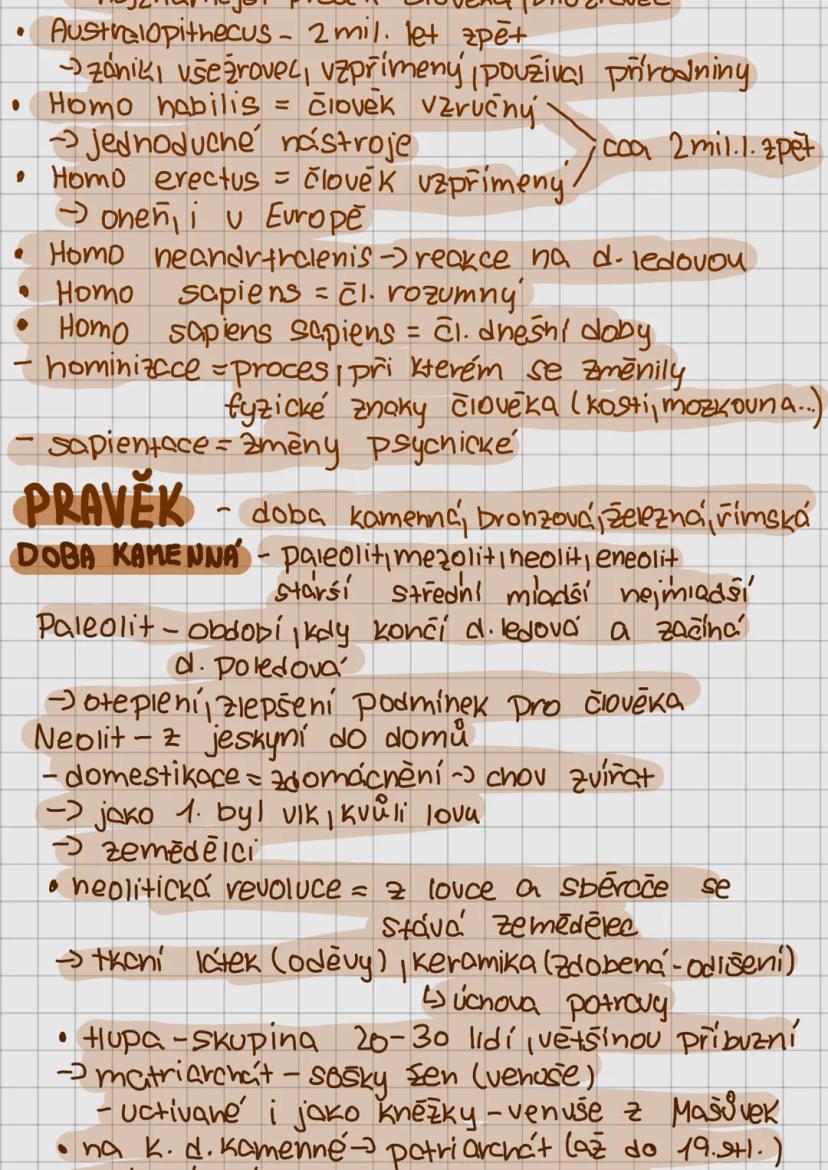 • Australopithecus - 2 mil. let zpět
→ zánik, všežravec, vzpřímený, používal přírodniny
• Homo habilis = člověk vzručný
→ jednoduché nástroje
cca 2mil.l. zpět
• Homo erectus = člověk vzpřímený
→ oheň, i v Evropě
• Homo neandrthalenis → reakce na d. ledovou
• Homo sapiens = čl. rozumný
• Homo sapiens sapiens = čl. dnešní doby
- hominizace = proces, při kterém se změnily
fyzické znaky člověka (kosti, mozkovna...)
- sapientace = změny psychické
PRAVĚK - doba kamenná, bronzová, železná, římská
DOBA KAMENNÁ - paleolit, mezolit, neolit, eneolit
starší střední mladší nejmladší
Paleolit - období, kdy končí d. ledová a začíná
d. poledová
→ oteplení, zlepšení podmínek pro člověka
Neolit - z jeskyní do domů
- domestikace = zdomácnění → chov zvířat
→ jako 1. byl vlk, kvůli lovu
→ zemědělci
• neolitická revoluce = z lovce a sběrače se
stává zemědělec
→ tkaní látek (oděvy), keramika (zdobená - odlišení)
↳ úchova potravy
• tlupa - skupina 20-30 lidí, většinou příbuzní
→ matriarchát - sošky žen (venuše)
- uctívané i jako kněžky - venuše z Mašůvek
• na k. d. kamenné → patriarchát (až do 19. stl.)